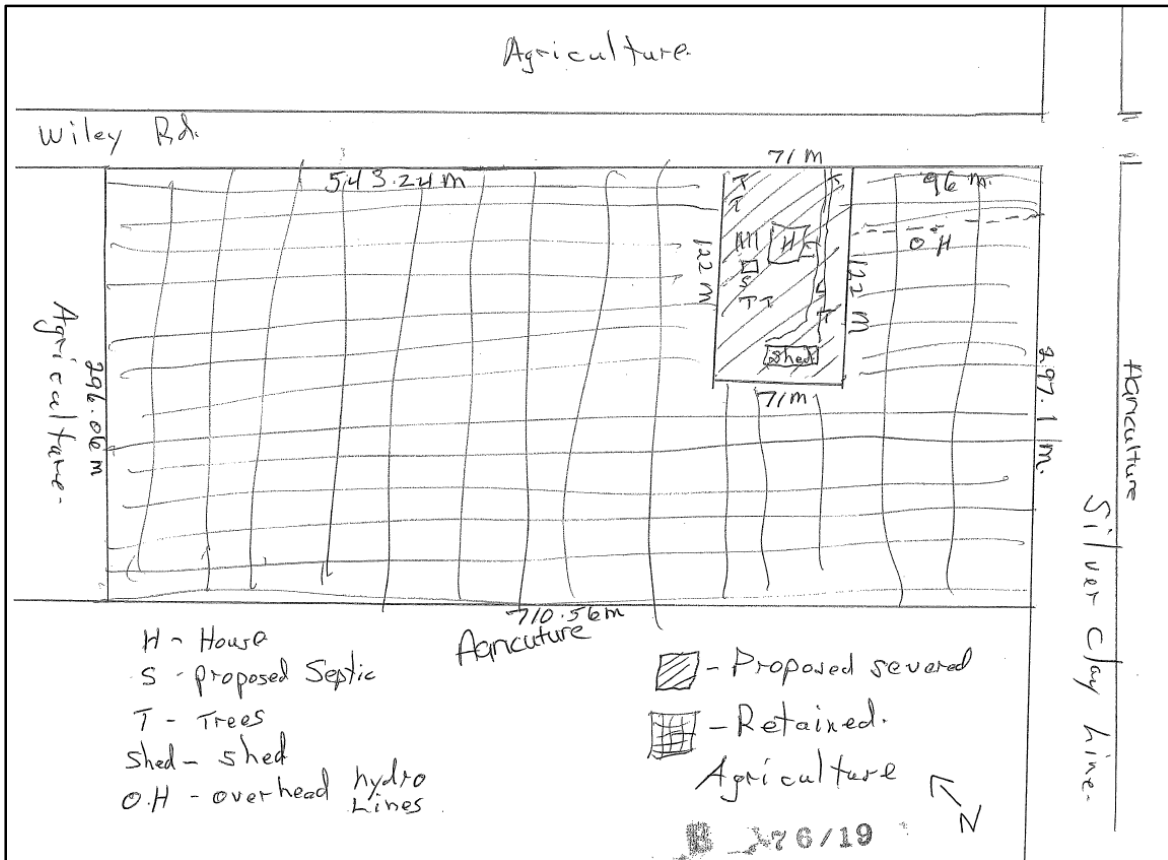 Agriculture
Wiley Rd.
71 M
543.24 m
96 m.
T
T
T
H
O H
122 M
S
T T
T
122 M
Shed
71 M
Agriculture
296.06 m
297.1 m.
Agriculture
Silver Clay Line.
710.56m
Agricuture
H - House
S - proposed Septic
T - Trees
Shed - shed
O.H - overhead hydro
Lines
- Proposed severed
- Retained.
Agriculture
N
76/19